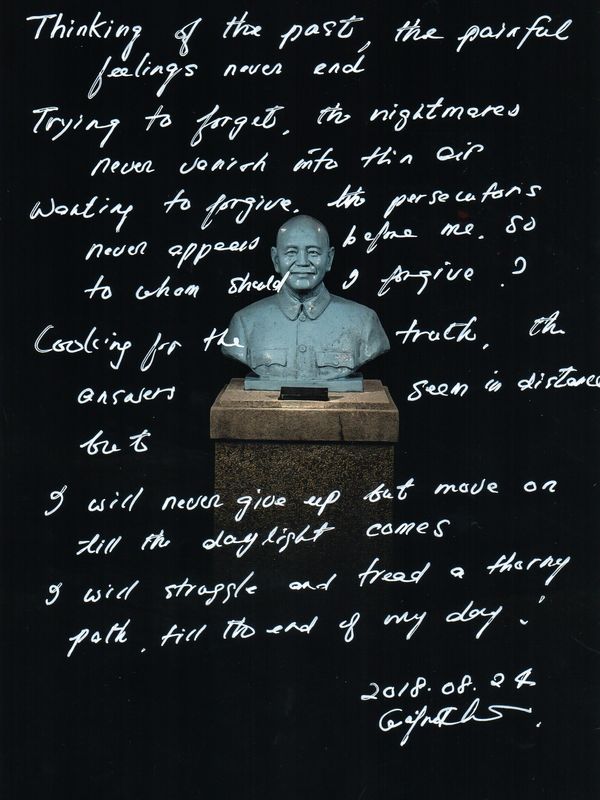 Thinking of the past, the painful
feelings never end
Trying to forget, the nightmares
never vanish into thin air
Wanting to forgive. the persecutors
never appears before me. So
to whom should I forgive ?
Looking for the truth, the
answers seem in distance
but
I will never give up but move on
till the daylight comes
I will struggle and tread a thorny
path, till the end of my day !
2018.08.24